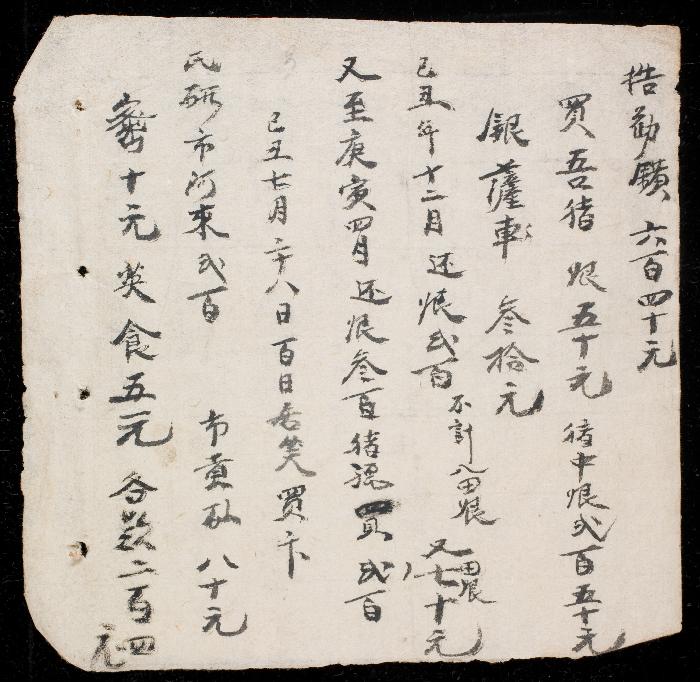 勸鑛 六百四十元
買吾猪 艮五十元 猪中艮弍百五十元
銀薩車 叁拾元
己丑年十二月还艮弍百 不計八田艮 又七十元 田艮
又至庚寅四月还艮叁百猪 買 弍百
己丑七月二十八日百日 買卞
氏研市河來弍百 布 八十元
十元 英食五元 谷 二百四元